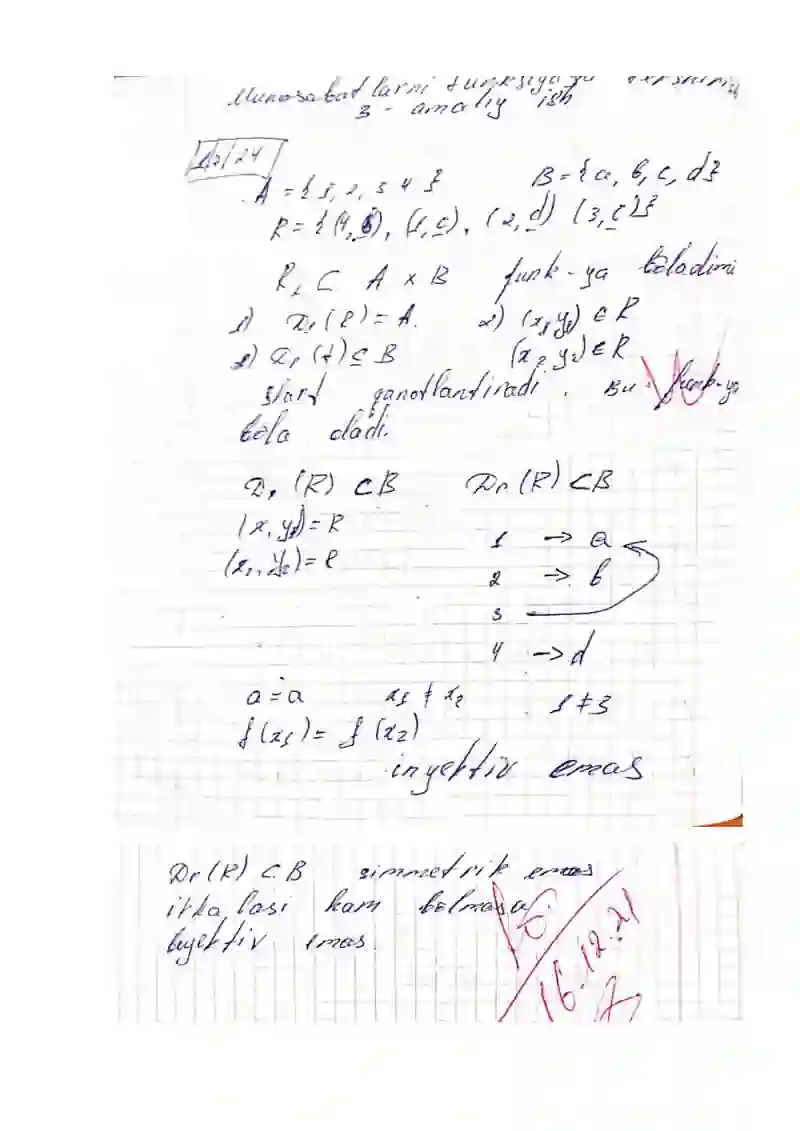 Munosabatlarni funksiyaga
3 - amaliy ish
A = { 1, 2, 3 4 } B = { a, b, c, d }
R = { (4, b), (1, c), (2, d) (3, c) }
R, ⊂ A × B funk-ya bòladimi
1) Dl (R) = A. 2) (x, y1) ∈ R
2) Dr (f) ⊆ B (x2 y2) ∈ R
shart qanotlantiradi. Bu funk-ya
bòla oladi.
Dr (R) ⊂ B Dr (R) ⊂ B
(x, y1) = R
(x1, y2) = R
1 → a
2 → b
3
4 → d
a = a x1 ≠ x2 1 ≠ 3
f(x1) = f(x2)
inyektiv emas
Dr (R) ⊂ B simmetrik emas
ikkalasi ham bolmasa
biyektiv emas.
16.12.21